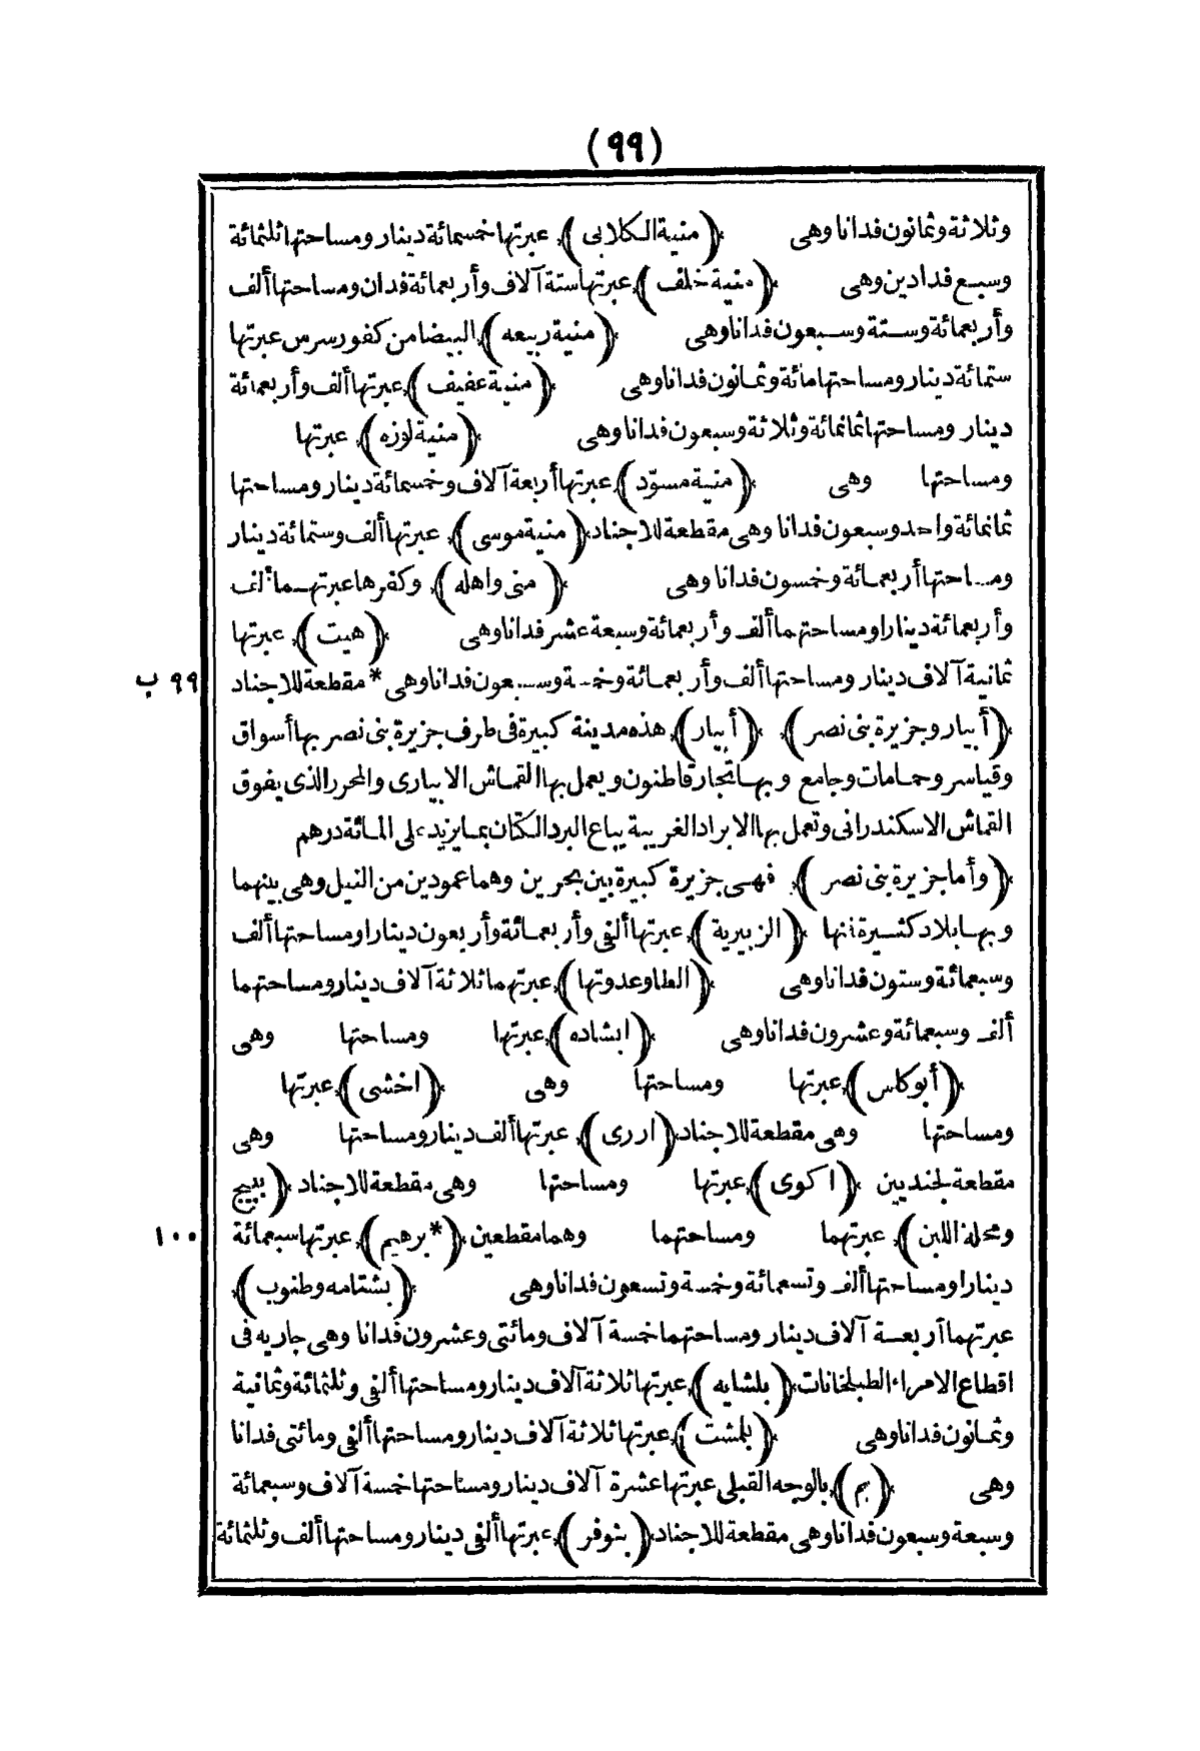 (٩٩)
وثلاثة وثمانون فدانا وهى (منية الكلابى) عبرتها خمسمائة دينار ومساحتها ثلثمائة
وسبع فدادين وهى (منية خلف) عبرتها ستة آلاف وأربعمائة فدان ومساحتها ألف
وأربعمائة وستة وسبعون فدانا وهى (منية ربيعه) البيضا من كفور سرس عبرتها
ستمائة دينار ومساحتها مائة وثمانون فدانا وهى (منية عفيف) عبرتها ألف وأربعمائة
دينار ومساحتها ثمانمائة وثلاثة وسبعون فدانا وهى (منية لوزه) عبرتها
ومساحتها وهى (منية مسوّد) عبرتها أربعة آلاف وخمسمائة دينار ومساحتها
ثمانمائة واحد وسبعون فدانا وهى مقطعة للاجناد (منية موسى) عبرتها ألف وستمائة دينار
ومساحتها أربعمائة وخمسون فدانا وهى (منى واهله) وكفرها عبرتهما ألف
وأربعمائة دينارا ومساحتهما ألف وأربعمائة وسبعة عشر فدانا وهى (هيت) عبرتها
ثمانية آلاف دينار ومساحتها ألف وأربعمائة وخمسة وسبعون فدانا وهى * مقطعة للاجناد
٩٩ ب
(أبيار وجزيرة بنى نصر) (أبيار) هذه مدينة كبيرة فى طرف جزيرة بنى نصر بها أسواق
وقياسر وحمامات وجامع وبها تجار قاطنون ويعمل بها القماش الابيارى والمحرر الذى يفوق
القماش الاسكندرانى وتعمل بها الابراد الغريبة يباع البرد الكتان بما يزيد على المائة درهم
(وأما جزيرة بنى نصر) فهى جزيرة كبيرة بين بحرين وهما عمودين من النيل وهى بينهما
وبها بلاد كثيرة فمنها (الزبيرية) عبرتها ألفى وأربعمائة وأربعون دينارا ومساحتها ألف
وسبعمائة وستون فدانا وهى (الطا وعدوتها) عبرتهما ثلاثة آلاف دينار ومساحتهما
ألف وسبعمائة وعشرون فدانا وهى (ابشاده) عبرتها ومساحتها وهى
(أبو كاس) عبرتها ومساحتها وهى (اخشى) عبرتها
ومساحتها وهى مقطعة للاجناد (اررى) عبرتها ألف دينار ومساحتها وهى
مقطعة لجنديين (اكوى) عبرتها ومساحتها وهى مقطعة للاجناد (ببيج
ومحلة اللبن) عبرتهما ومساحتهما وهما مقطعين (* برهيم) عبرتها سبعمائة
١٠٠
دينارا ومساحتها ألف وتسعمائة وخمسة وتسعون فدانا وهى (بشتامه وطنوب)
عبرتهما أربعة آلاف دينار ومساحتهما خمسة آلاف ومائتى وعشرون فدانا وهى جاريه فى
اقطاع الامراء الطبلخانات (بلشايه) عبرتها ثلاثة آلاف دينار ومساحتها ألفى وثلثمائة وثمانية
وثمانون فدانا وهى (بلمشت) عبرتها ثلاثة آلاف دينار ومساحتها ألفى ومائتى فدانا
وهى (بم) بالوجه القبلى عبرتها عشرة آلاف دينار ومساحتها خمسة آلاف وسبعمائة
وسبعة وسبعون فدانا وهى مقطعة للاجناد (بنوفر) عبرتها ألفى دينار ومساحتها ألف وثلثمائة